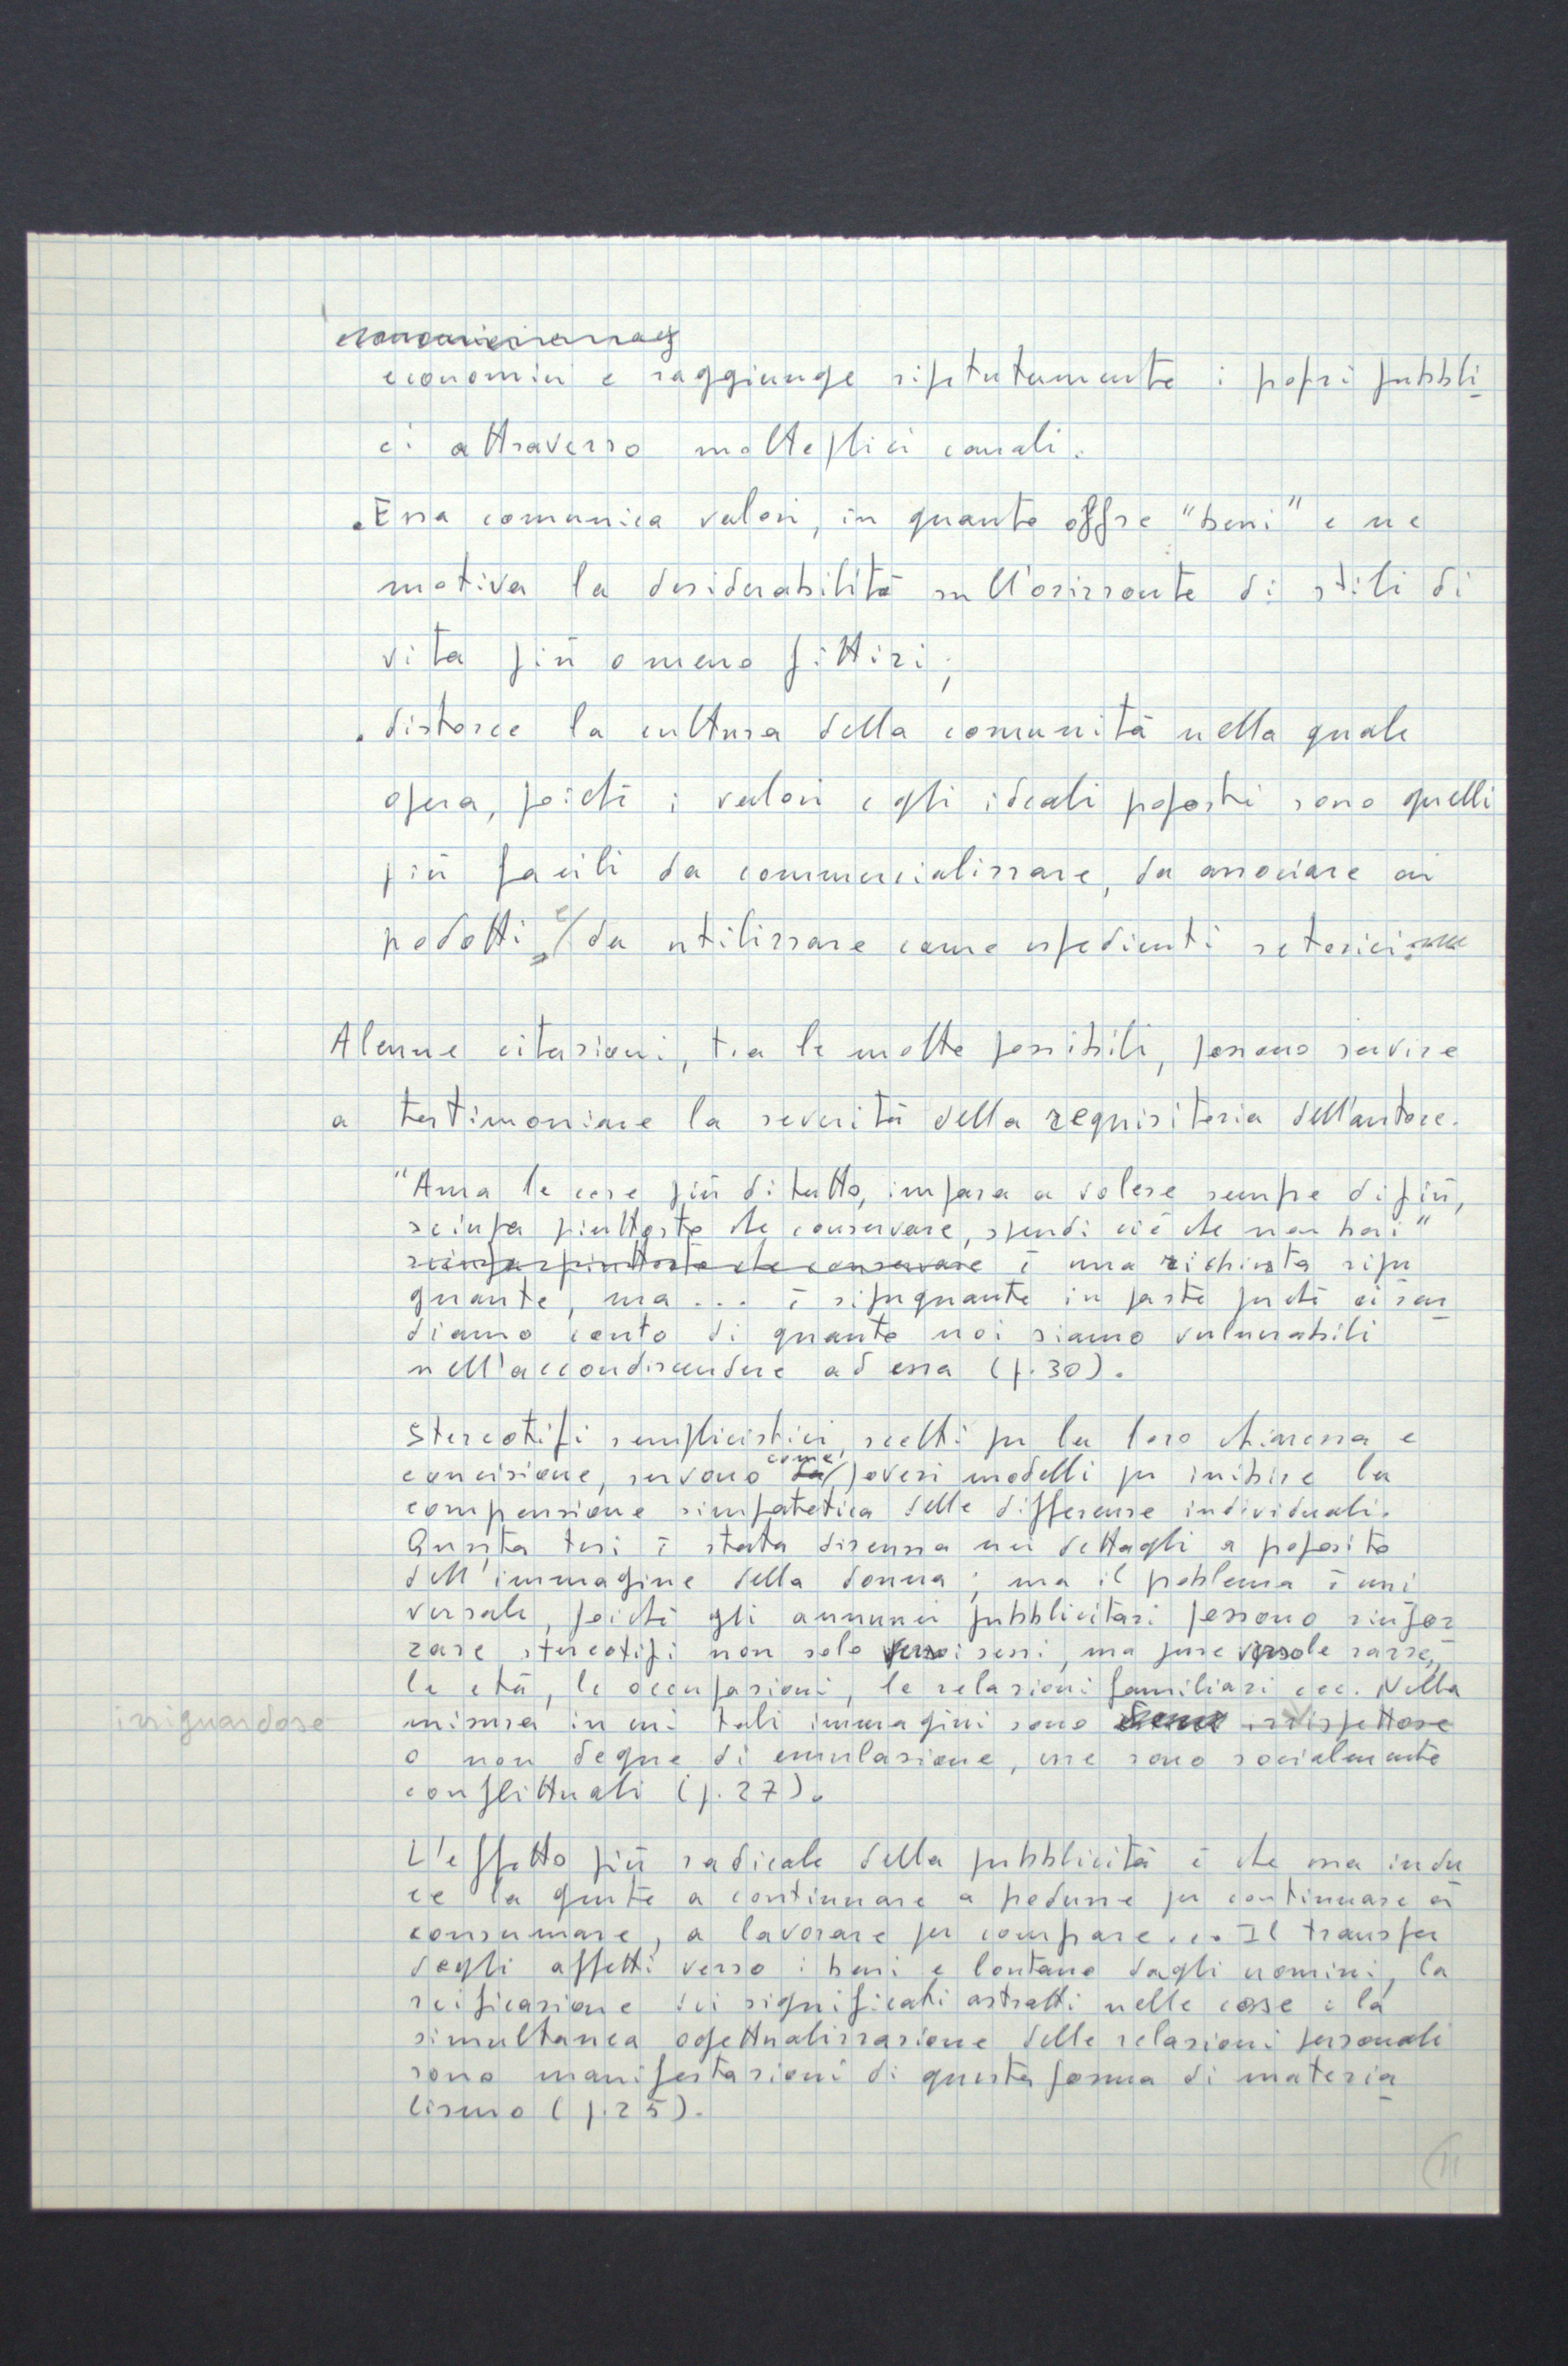 economici e raggiunge ripetutamente i propri pubbli
ci attraverso molteplici canali.
. Essa comunica valori, in quanto offre "beni" e ne
motiva la desiderabilità sull'orizzonte di stili di
vita più o meno fittizi;
. distorce la cultura della comunità nella quale
opera, poiché i valori e gli ideali proposti sono quelli
più facili da commercializzare, da associare ai
prodotti e/ da utilizzare come espedienti retorici.
Alcune citazioni, tra le molte possibili, possono servire
a testimoniare la severità della requisitoria dell'autore.
"Ama le cose più di tutto, impara a volere sempre di più,
sciupa piuttosto che conservare, spendi ciò che non hai"
sciupa piuttosto che conservare è una richiesta ripu
gnante, ma ... è ripugnante in parte perché ci ren
diamo conto di quanto noi siamo vulnerabili
nell'accondiscendere ad essa (p. 30).
Stereotipi semplicistici, scelti per la loro chiarezza e
come
concisione, servono da/ poveri modelli per inibire la
comprensione simpatetica delle differenze individuali.
Questa tesi è stata discussa nei dettagli a proposito
dell'immagine della donna; ma il problema è uni
versale, poiché gli annunci pubblicitari possono rinfor
zare stereotipi non solo verso i sessi, ma pure verso le razze,
le età, le occupazioni, le relazioni familiari ecc. Nella
irriguardose
misura in cui tali immagini sono irrispettose
o non degne di emulazione, esse sono socialmente
conflittuali (p. 27).
L'effetto più radicale della pubblicità è che essa indu
ce la gente a continuare a produrre per continuare a
consumare, a lavorare per comprare... Il transfer
degli affetti verso i beni e lontano dagli uomini, la
reificazione dei significati astratti nelle cose e la
simultanea oggettualizzazione delle relazioni personali
sono manifestazioni di questa forma di materia
lismo (p. 25).